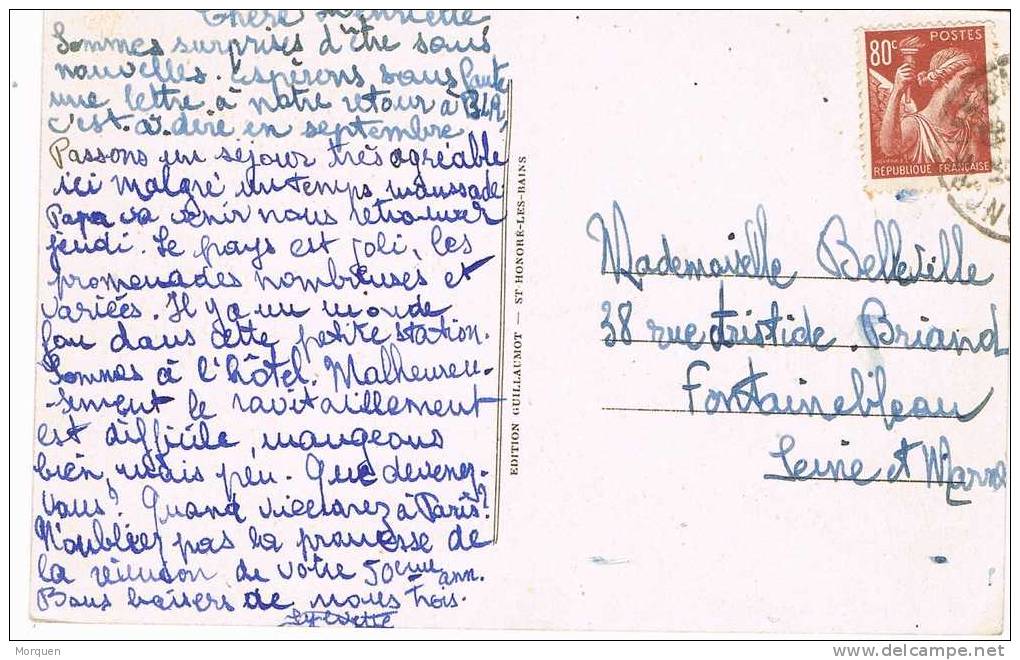 Chère Henriette
Sommes surprises d'être sans
nouvelles. Espérons sans faute
une lettre à notre retour à BLR,
c'est à dire en septembre.
Passons un séjour très agréable
ici malgré un temps maussade.
Papa va venir nous retrouver
jeudi. Le pays est joli, les
promenades nombreuses et
variées. Il y a un monde
fou dans cette petite station.
Sommes à l'hôtel. Malheureu-
sement le ravitaillement
est difficile, mangeons
bien, mais peu. Que devenez-
vous? Quand viendrez à Paris?
N'oubliez pas la promesse de
la réunion de votre 50ème ann.
Bons baisers de nous trois.
EDITION GUILLAUMOT — ST-HONORÉ-LES-BAINS
80c POSTES
RÉPUBLIQUE FRANÇAISE
Mademoiselle Belleville
38 rue Aristide Briand
Fontainebleau
Seine et Marne
Morquen
delcampe.net